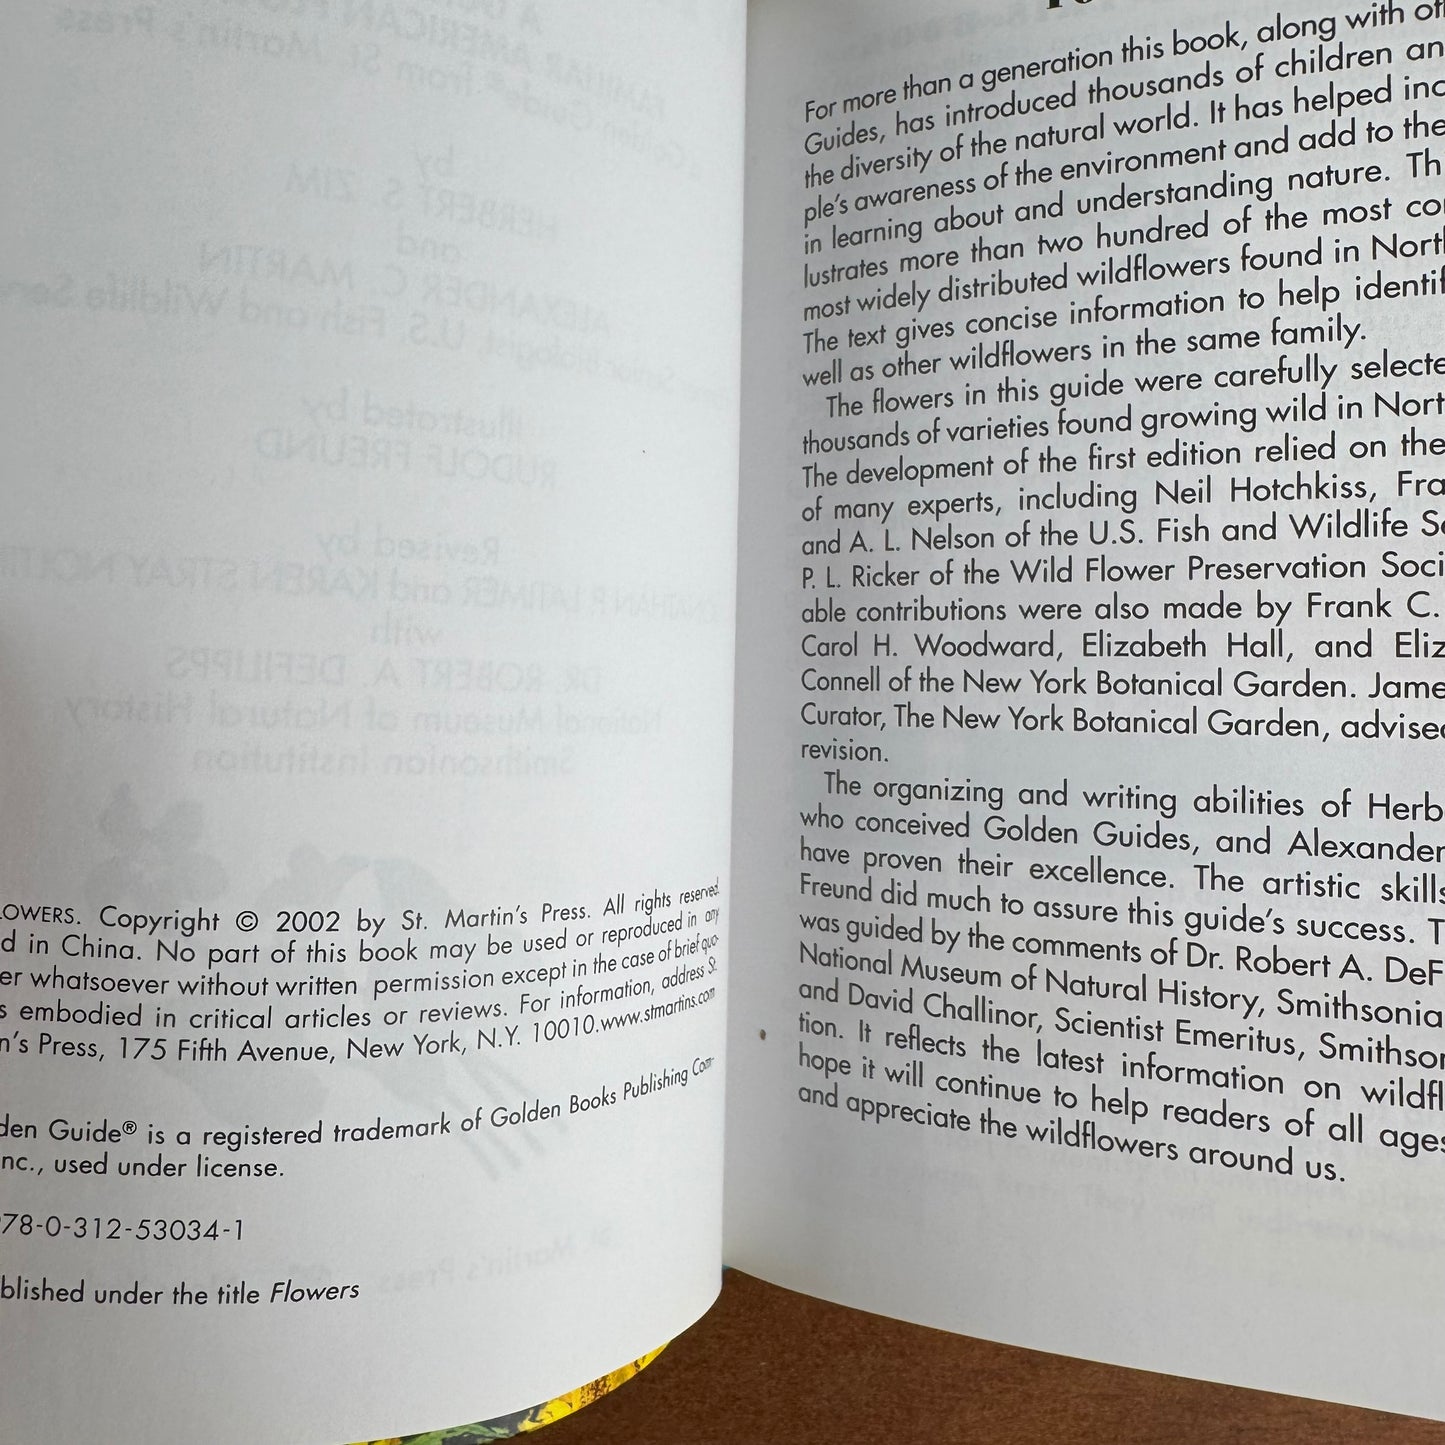 LOWERS. Copyright © 2002 by St. Martin's Press. All rights reserved.
d in China. No part of this book may be used or reproduced in any
er whatsoever without written permission except in the case of brief quo-
s embodied in critical articles or reviews. For information, address St.
n's Press, 175 Fifth Avenue, New York, N.Y. 10010.www.stmartins.com
den Guide® is a registered trademark of Golden Books Publishing Com-
nc., used under license.
78-0-312-53034-1
blished under the title Flowers
For more than a generation this book, along with ot
Guides, has introduced thousands of children an
the diversity of the natural world. It has helped inc
ple's awareness of the environment and add to the
in learning about and understanding nature. Th
lustrates more than two hundred of the most co
most widely distributed wildflowers found in Nort
The text gives concise information to help identif
well as other wildflowers in the same family.
The flowers in this guide were carefully selecte
thousands of varieties found growing wild in Nort
The development of the first edition relied on the
of many experts, including Neil Hotchkiss, Fra
and A. L. Nelson of the U.S. Fish and Wildlife Se
P. L. Ricker of the Wild Flower Preservation Soci
able contributions were also made by Frank C.
Carol H. Woodward, Elizabeth Hall, and Eliz
Connell of the New York Botanical Garden. Jame
Curator, The New York Botanical Garden, advise
revision.
The organizing and writing abilities of Herb
who conceived Golden Guides, and Alexander
have proven their excellence. The artistic skills
Freund did much to assure this guide's success. T
was guided by the comments of Dr. Robert A. DeF
National Museum of Natural History, Smithsonia
and David Challinor, Scientist Emeritus, Smithson
tion. It reflects the latest information on wildfl
hope it will continue to help readers of all ages
and appreciate the wildflowers around us.